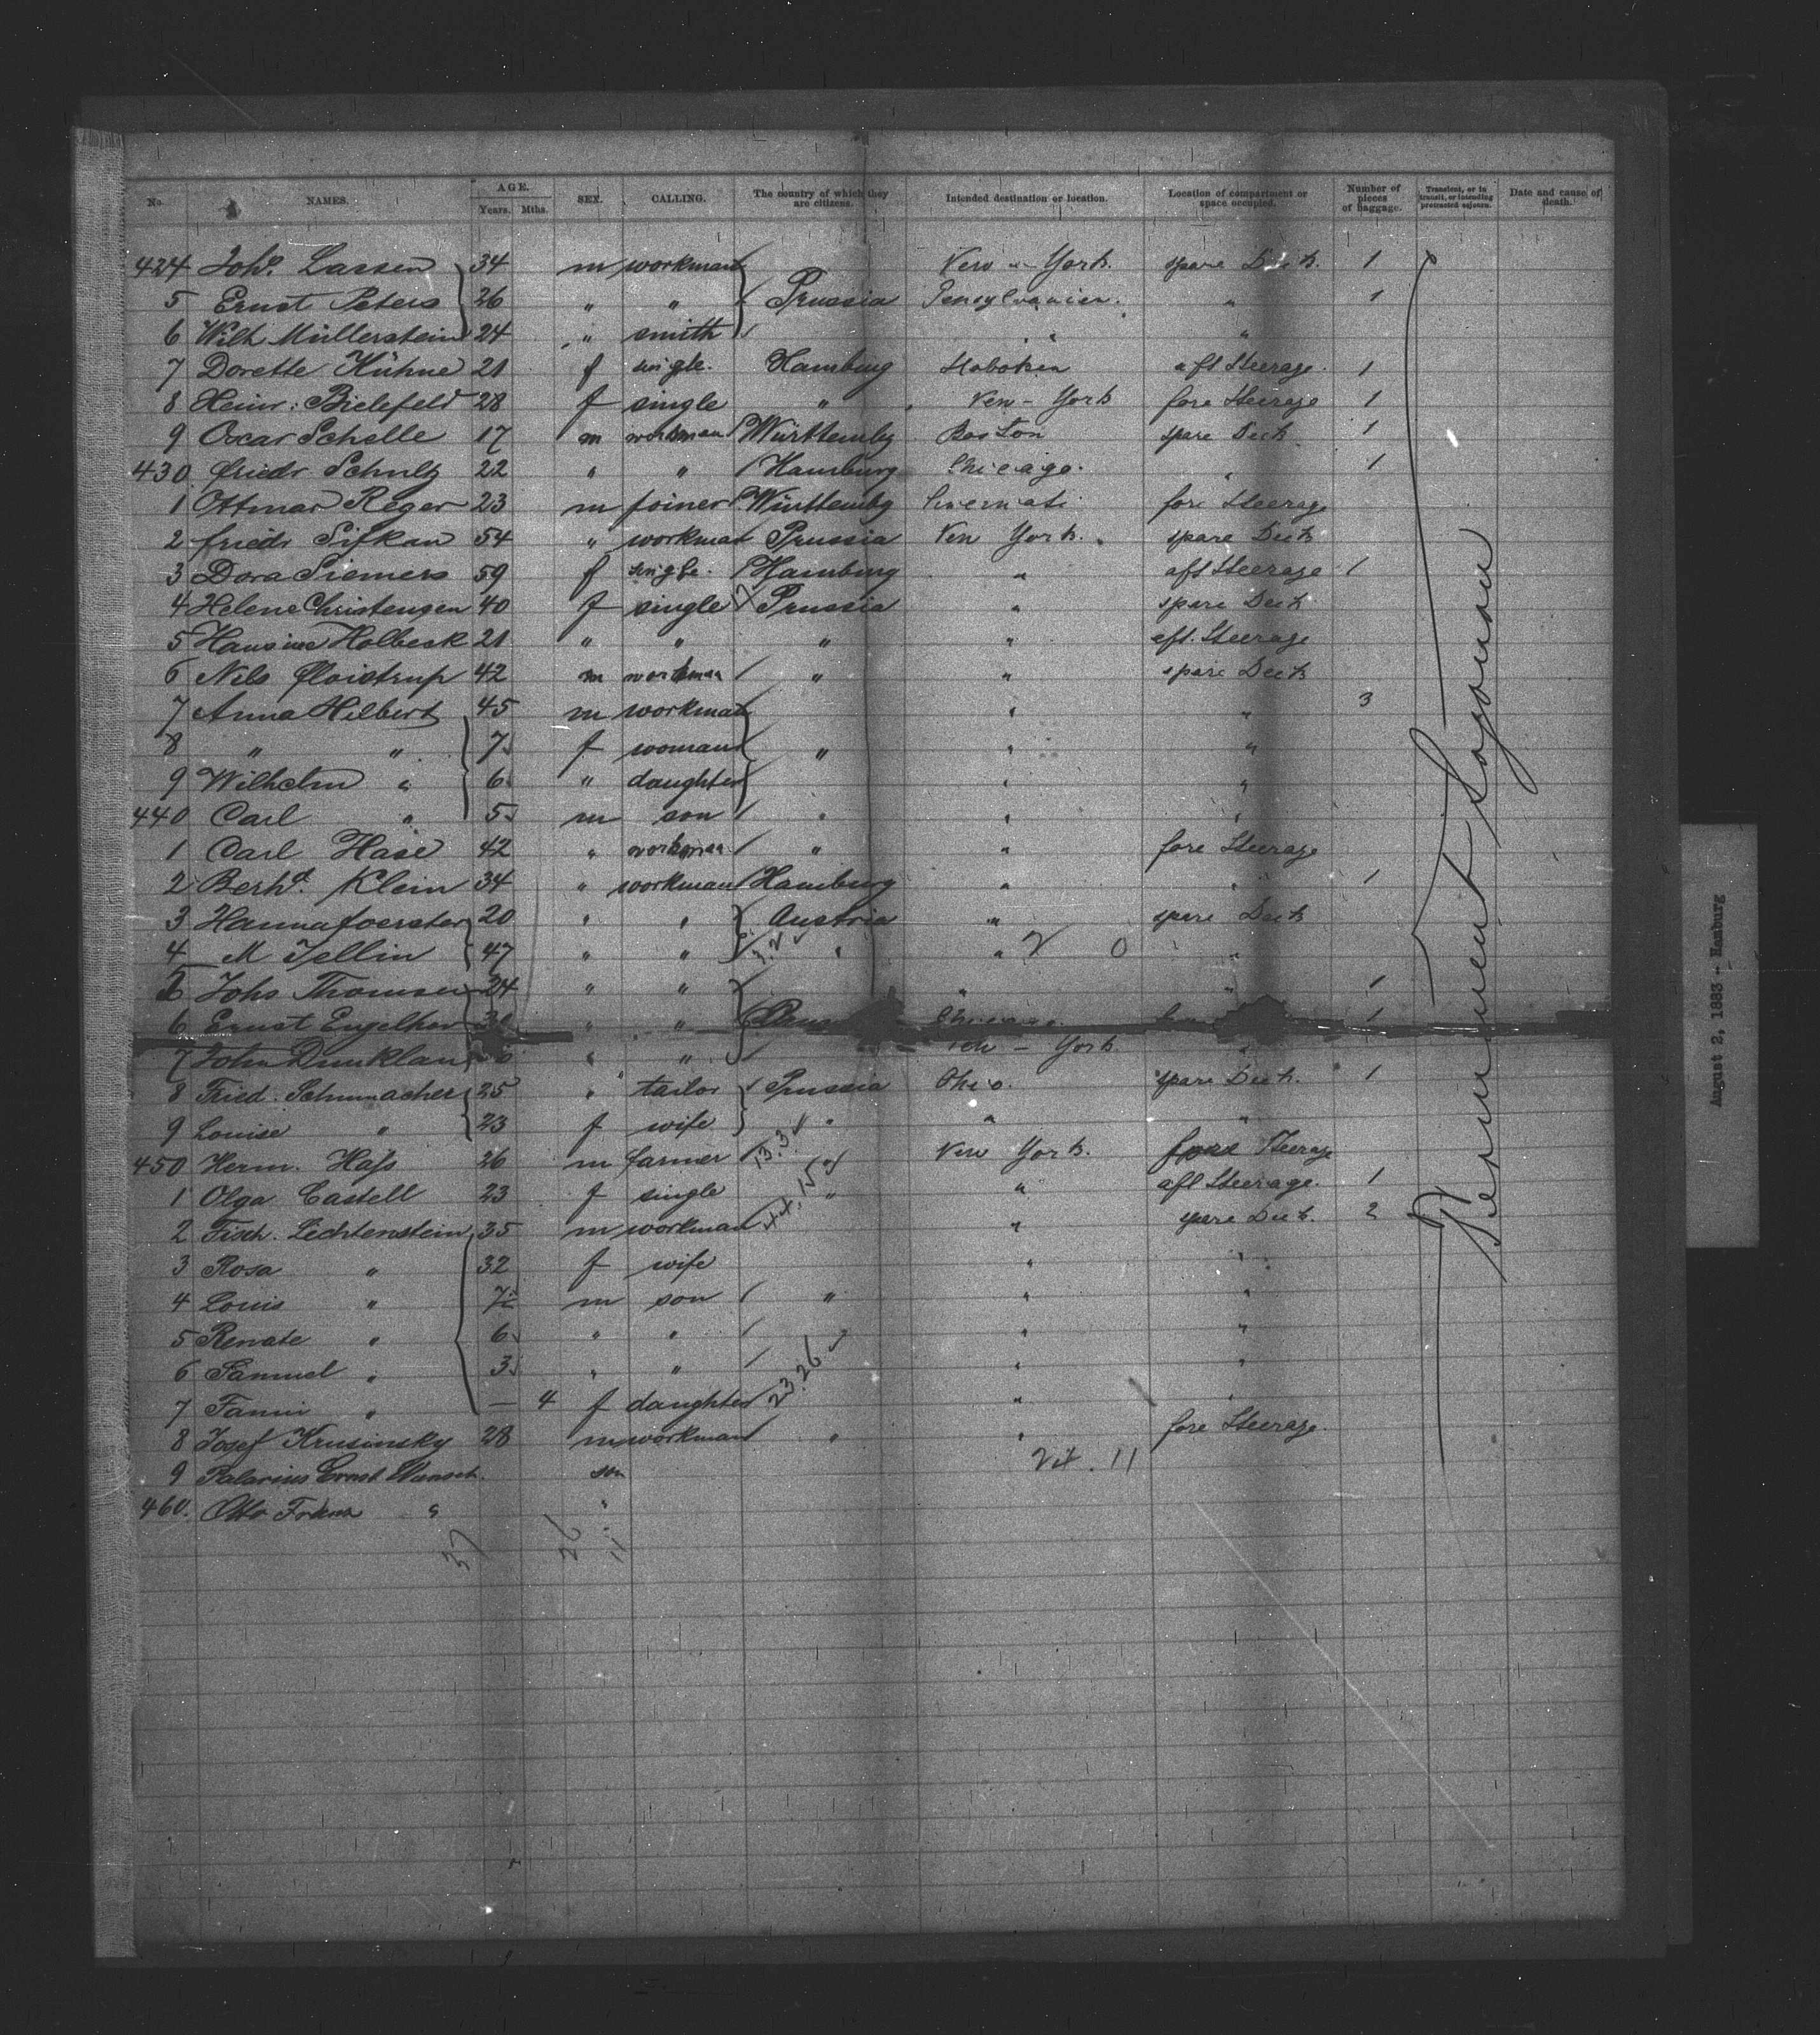 No. NAMES. AGE. Years. Mths. SEX. CALLING. The country of which they are citizens. Intended destination or location. Location of compartment or space occupied. Number of pieces of baggage. Transient, or in transit, or intending protracted sojourn. Date and cause of death.
424 Joh⁠s. Lassen 34 m workman New - York. spare Deck. 1
5 Ernst Peters 26 " " Prussia Pensylvanien. " 1
6 Wilh Müllerstein 24 " smith " "
7 Dorette Kühne 21 f single. Hamburg Hoboken aft Steerage. 1
8 Heinr: Bielefeld 28 f single " New - York fore Steerage 1
9 Oscar Schelle 17 m workman Württembg Boston spare Deck 1
430. Friedr Schulz 22 " " Hamburg Chicago. " 1
1 Ottmar Reger 23 m joiner Württembg Cincinati fore Steerage
2 Friedr Sifkan 54 " workman Prussia New York. spare Deck
3 Dora Siemers 59 f single. Hamburg " aft Steerage 1
4 Helene Christensen 40 f single Prussia " spare Deck
5 Hansine Holbeck 21 " " " " aft. Steerage
6 Nils Qvistrup 42 m workman " " spare Deck
7 Anna Hilbert 45 m workman " " 3
8 " " 7 f woman " " "
9 Wilhelm " 6 " daughter " "
440 Carl " 5 m son " " "
1 Carl Hase 42 " workman " " fore Steerage
2 Berhd. Klein 34 " workman Hamburg " " 1
3 Hanna Foerster 20 " " Austria " spare Deck
4 M Jellin 47 " " " " 2 0 "
5 Johs Thomsen 24 " " " " 1
6 Ernst Engelker " " Chicago. 1
7 John Dunklau " " New - York "
8 Fried. Schumacher 25 " tailor Prussia Ohio. spare Deck. 1
9 Louise " 23 f wife " " "
450 Herm. Hass 26 m farmer 13.3 New York. fore Steerage
1 Olga Castell 23 f single " " aft Steerage. 1
2 Fisch. Lichtenstein 35 m workman " spare Deck. 2
3 Rosa " 32 f wife " "
4 Louis " 7 m son " " "
5 Renate " 6 " " " "
6 Samuel " 3 " " " "
7 Fanni " — 4 f daughter 23.26 " "
8 Josef Krusinsky 28 m workman " " fore Steerage.
9 Ernst Wunsch. son 11
460. Otto Franz " "
37 26 11
Permanent Sojourn
August 2, 1883 - Hamburg